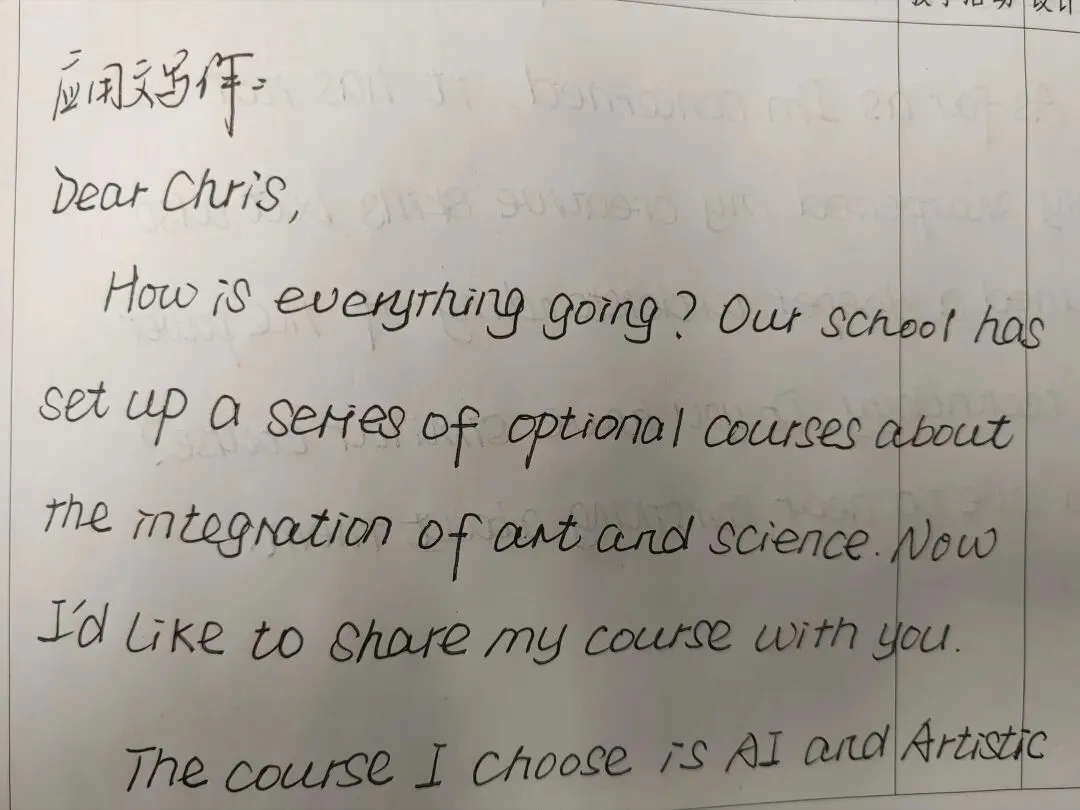 教学活动设计
应用文写作:
Dear Chris,
How is everything going? Our school has
set up a series of optional courses about
the integration of art and science. Now
I'd like to share my course with you.
The course I choose is AI and Artistic